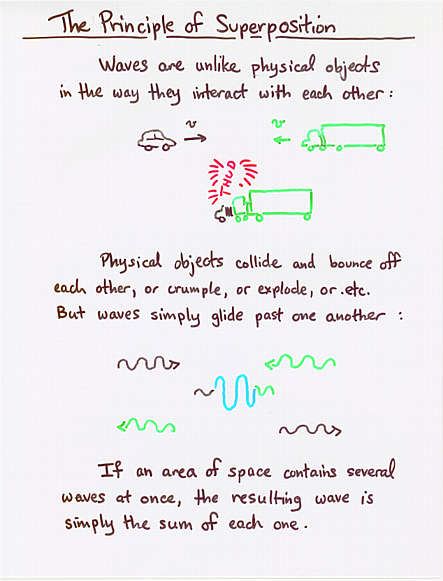 The Principle of Superposition
Waves are unlike physical objects
in the way they interact with each other:
v
v
THUD
Physical objects collide and bounce off
each other, or crumple, or explode, or etc.
But waves simply glide past one another :
If an area of space contains several
waves at once, the resulting wave is
simply the sum of each one.